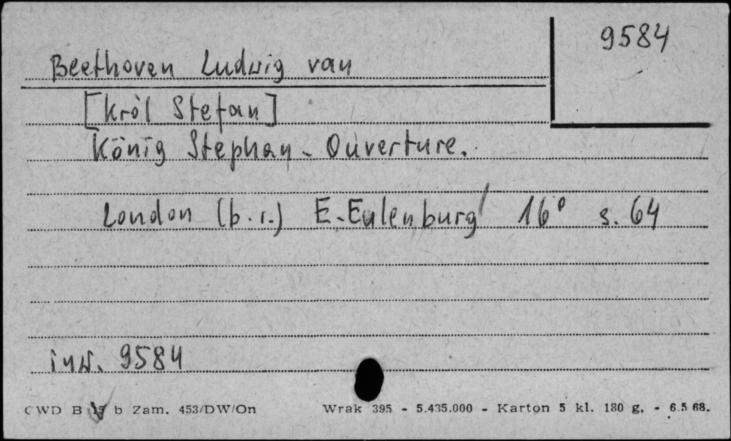 9584
Beethoven Ludwig van
[Król Stefan]
König Stephan - Ouverture.
London (b.r.) E. Eulenburg 16° s. 64
inw. 9584
CWD B b Zam. 453/DW/On Wrak 395 - 5.435.000 - Karton 5 kl. 180 g. - 6.5 68.